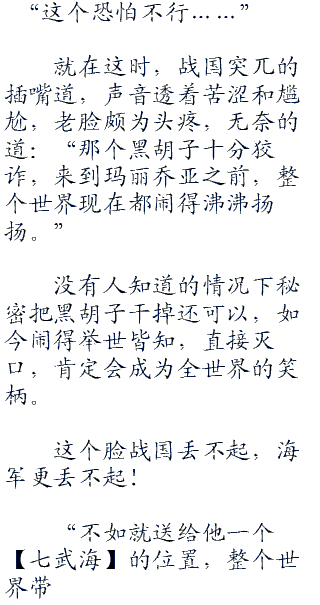 “这个恐怕不行……”
就在这时，战国突兀的
插嘴道，声音透着苦涩和尴
尬，老脸颇为头疼，无奈的
道：“那个黑胡子十分狡
诈，来到玛丽乔亚之前，整
个世界现在都闹得沸沸扬
扬。”
没有人知道的情况下秘
密把黑胡子干掉还可以，如
今闹得举世皆知，直接灭
口，肯定会成为全世界的笑
柄。
这个脸战国丢不起，海
军更丢不起！
“不如就送给他一个
【七武海】的位置，整个世
界带